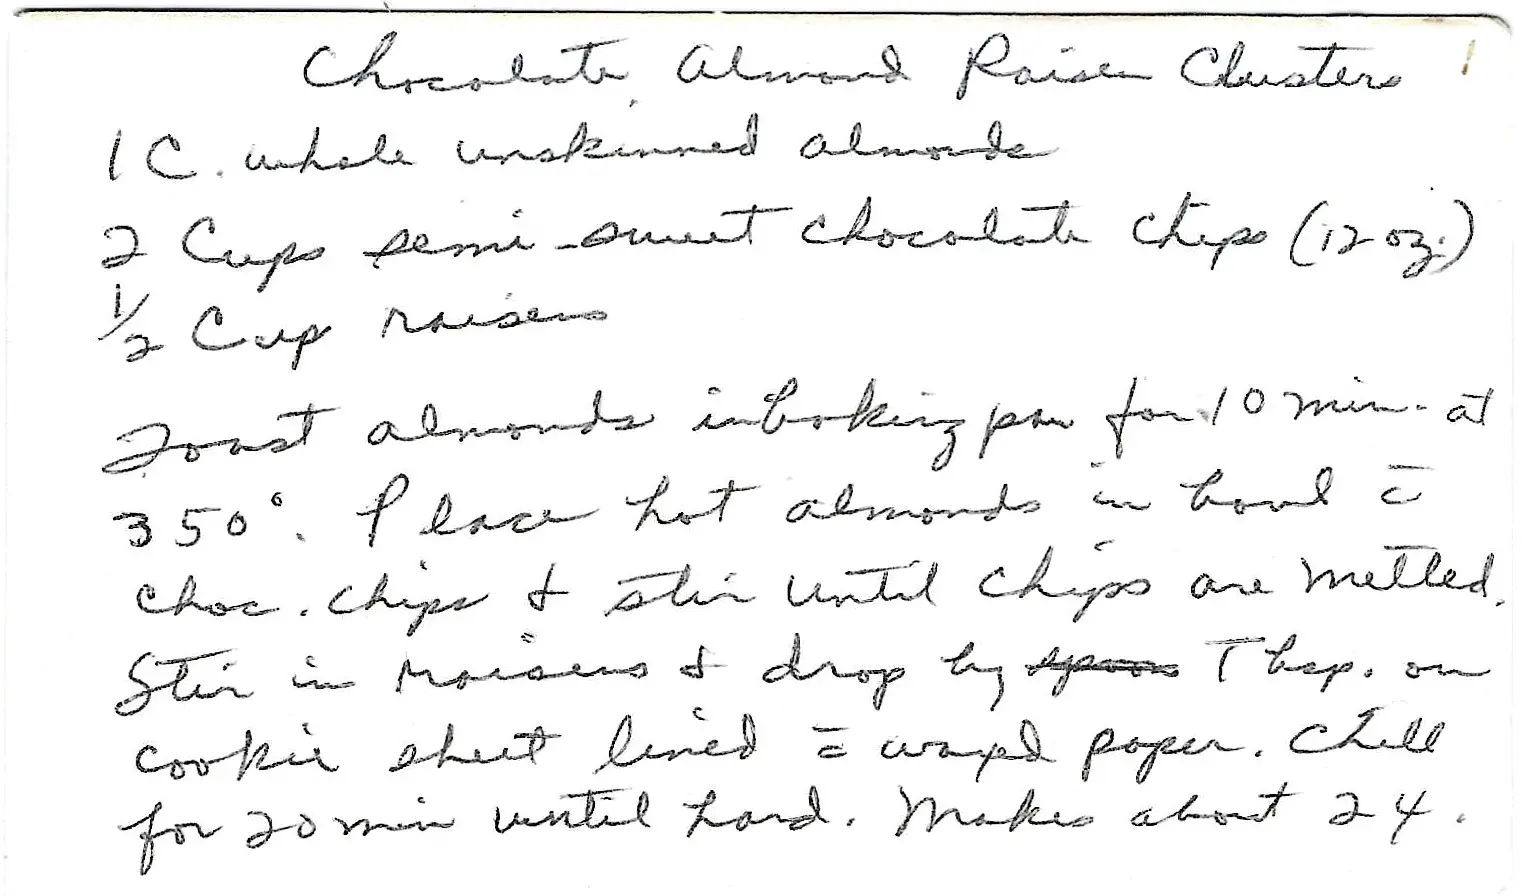 Chocolate Almond Raisen Clusters
1 C. whole unskinned almonds
2 Cups semi-sweet chocolate chips (12 oz.)
1/2 Cup raisens
Toast almonds in baking pan for 10 min. at
350°. Place hot almonds in bowl c̄
choc. chips & stir until chips are melted.
Stir in raisens & drop by ~~spoon~~ Tbsp. on
cookie sheet lined c̄ waxed paper. Chill
for 20 min until hard. Makes about 24.